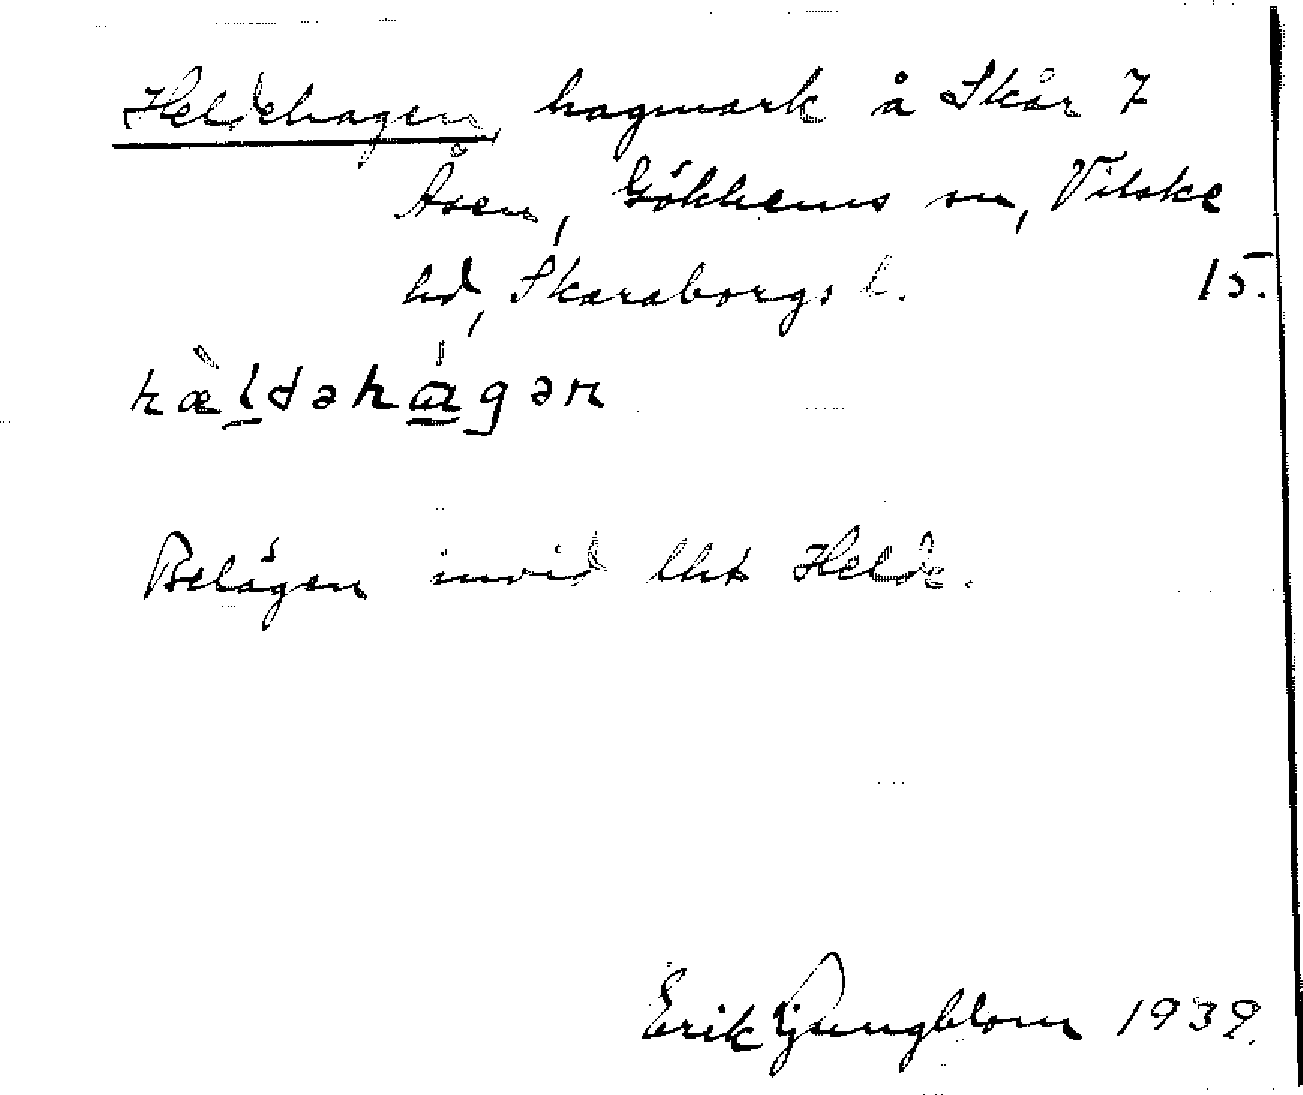 Heldehagen, hagmark å Skår 7
Åsen, Gökhems sn, Vilske
hd, Skaraborgs l. 15.
hæ̀ldəhá̱gən
Belägen invid lht Helde.
Erik Ljungblom 1939.